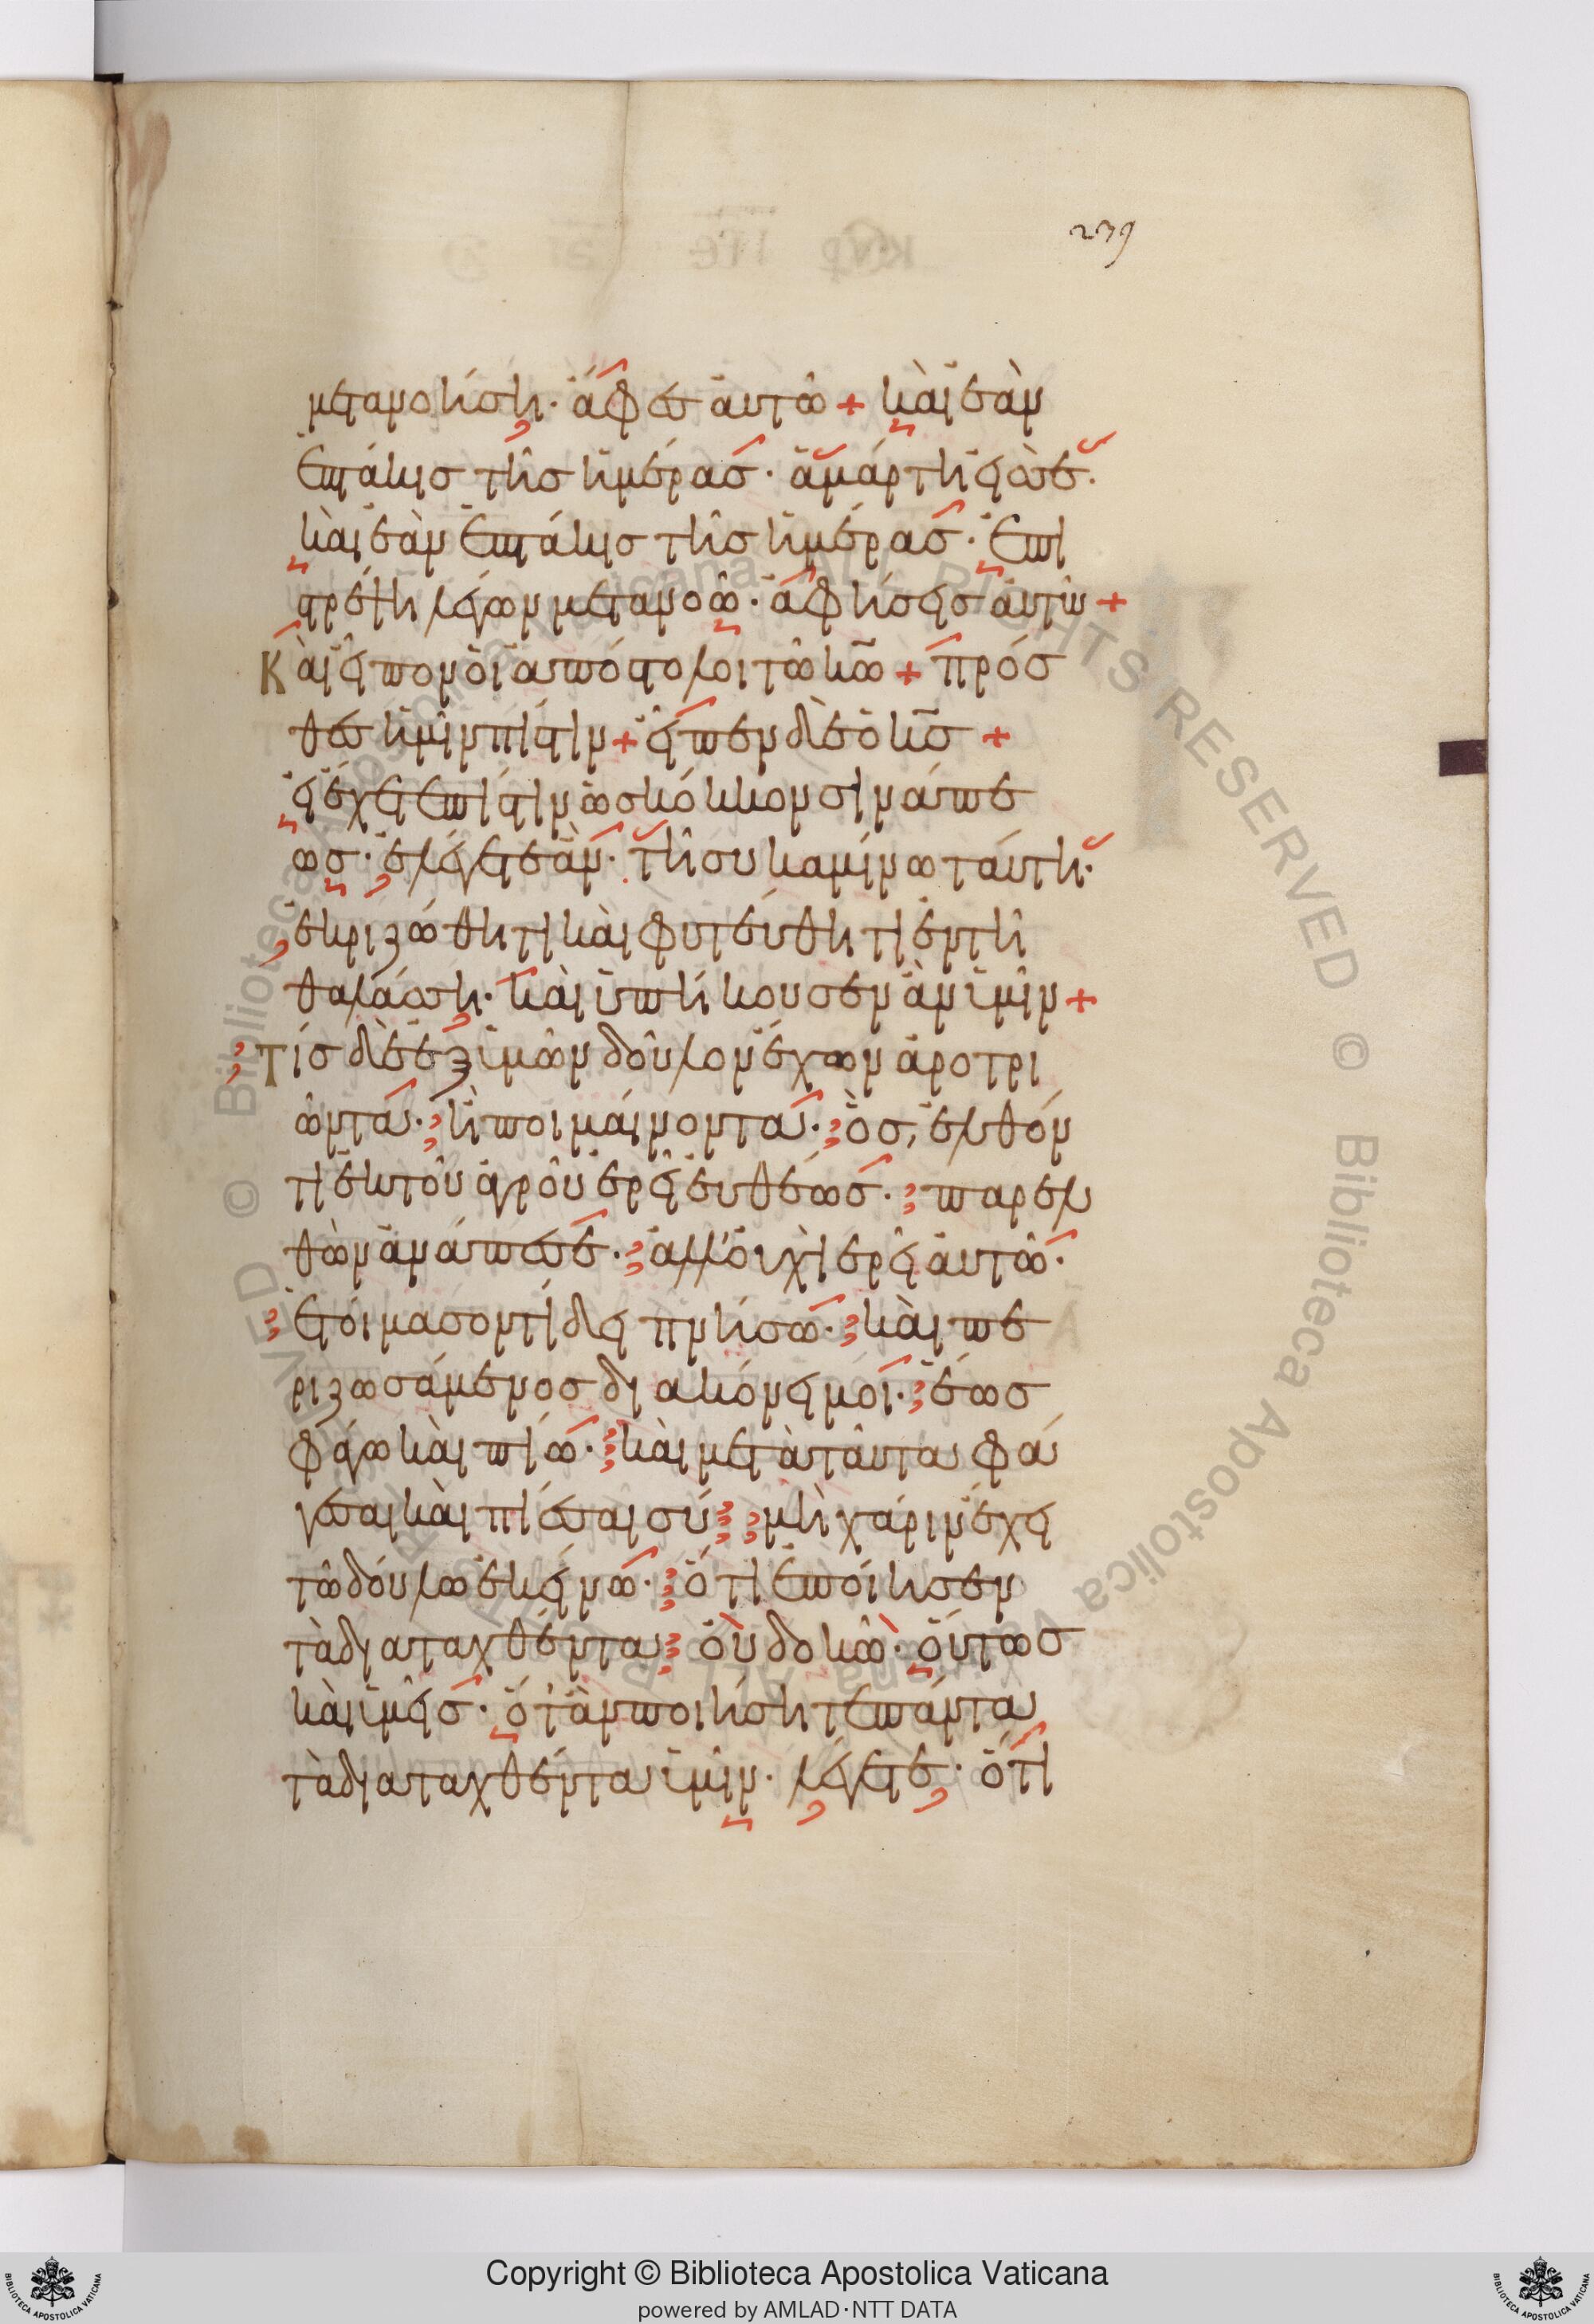 239
μετανοήση· ἄφες αὐτῶ + καὶ ἐὰν
ἑπτάκις τῆς ἡμέρας· ἁμάρτη εἰς σὲ·
καὶ ἐὰν ἑπτάκις τῆς ἡμέρας· ἐπι
στρέψη λέγων μετανοῶ· ἀφήσεις αὐτῶ +
Καὶ εἶπον οἱ ἀπόστολοι τῶ κω + πρόσ
θες ἡμῖν πίστιν + εἶπεν δὲ ὁ κς +
εἰ ἔχετε πίστιν ὡς κόκκον σινάπε
ως· ἐλέγετε ἂν· τῆ συκαμίνω ταύτη·
ἐκριζώθητι καὶ φυτεύθητι ἐν τῆ
θαλάσση· καὶ ὑπήκουσεν ἂν ὑμῖν +
Τίς δὲ ἐξ ὑμῶν δοῦλον ἔχων ἀροτρι
ῶντα· ἢ ποιμαίνοντα· ὃς, ἐλθόν
τι ἐκ τοῦ ἀγροῦ ἐρεῖ εὐθέως· παρελ
θὼν ἀνάπεσε· ἀλλ' οὐχὶ ἐρεῖ αὐτῶ·
ἑτοίμασον τί δειπνήσω· καὶ πε
ριζωσάμενος διακόνει μοι· ἕως
φάγω καὶ πίω· καὶ μετὰ ταῦτα φά
γεσαι καὶ πίεσαι σύ; μὴ χάριν ἔχει
τῶ δούλω ἐκείνω· ὅτι ἐποίησεν
τὰ διαταχθέντα; οὐ δοκῶ· οὕτως
καὶ ὑμεῖς· ὅτ' ἂν ποιήσητε πάντα
τὰ διαταχθέντα ὑμῖν· λέγετε· ὅτι
Copyright © Biblioteca Apostolica Vaticana
powered by AMLAD·NTT DATA